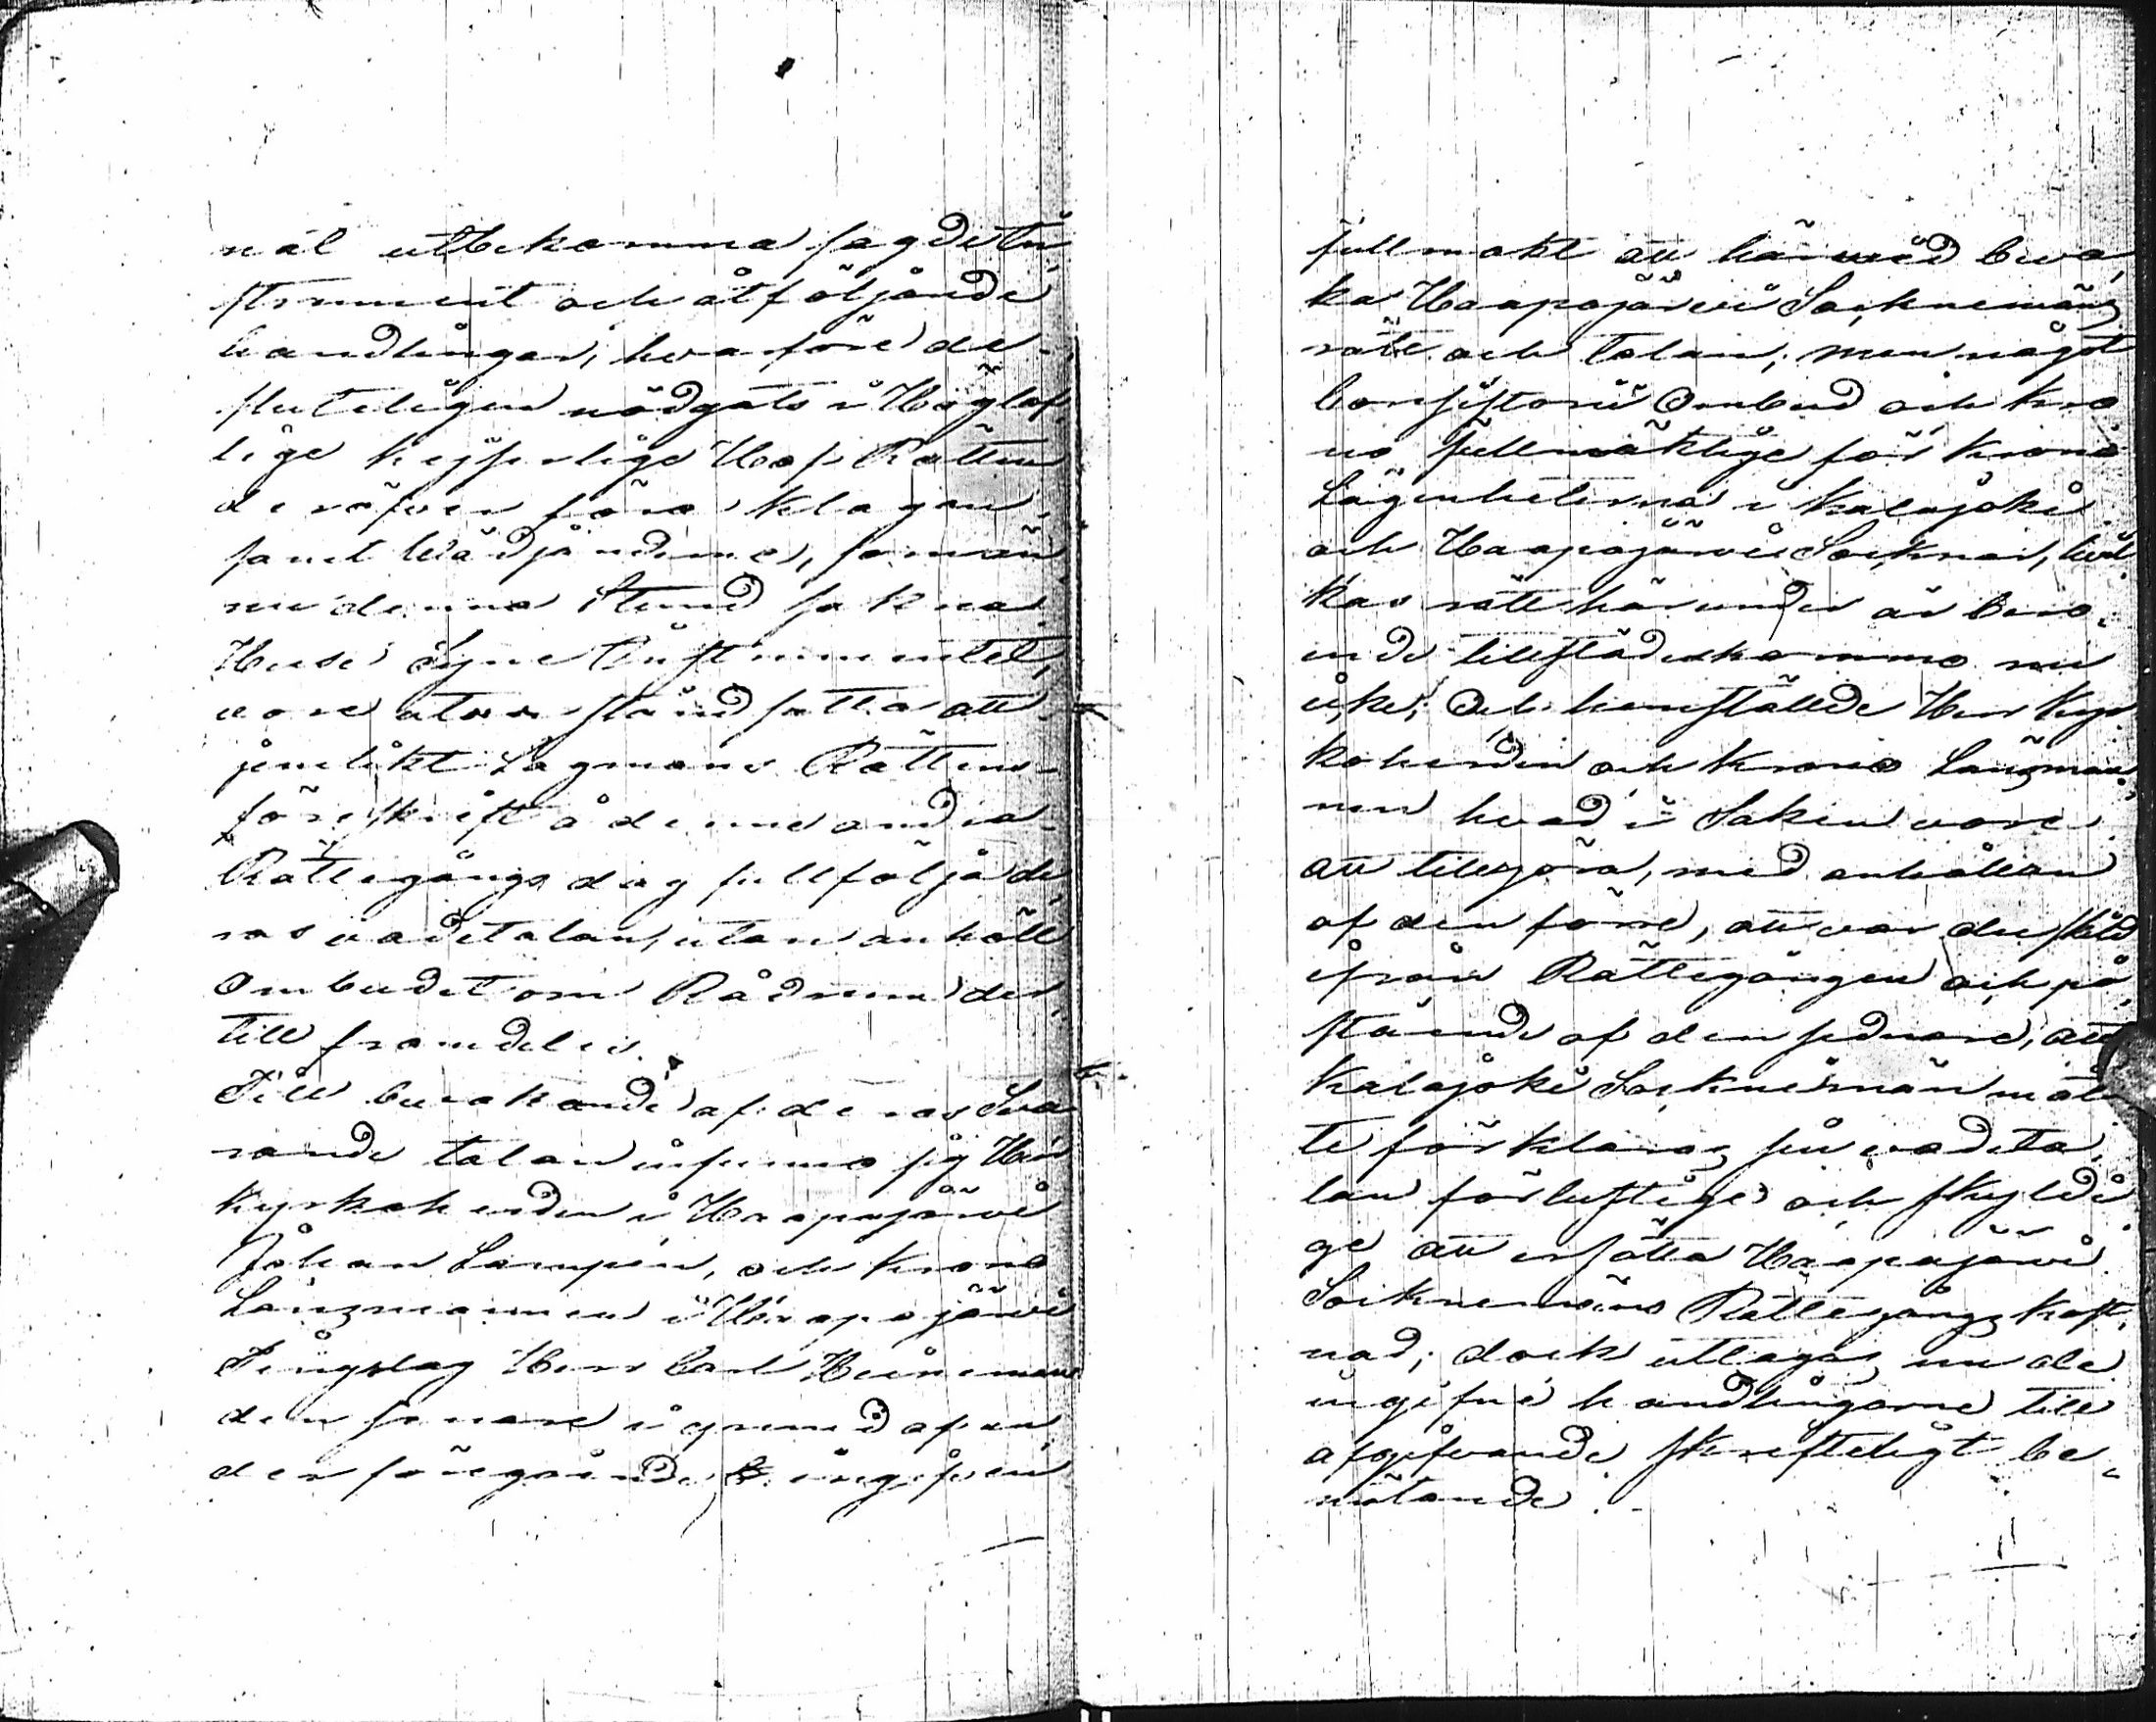 nål utbekomma sagde In,
strument och åtföljande
handlingar, hvarföre de
sluteligen nödgats i Höglof,
lige Keijserlige Hof Rätten
deröfver föra klagan,
samt Wädjanderne, som än
nu denna stund sakna
Husesyne Instrumentet,
vore utom ståndsatta att
jemlikt Lagmans Rättens
föreskrift å denne andra
Rättegångs dag fullfölja de,
ras vadetalan, utan anhölt
Ombudet om Rådrum der,
till framdeles.
Till bevakande af deras Sva
rande talan infunno sig Herr
Kyrkoherden i Haapajärvi
Johan Lampén, och Krono
Länsmannen i Haapajärvi
Tingslag Herr Carl Heineman
den senare i grund af en
der föregående, ingifven
fullmakt att härvid beva,
ka Haapajärvi Socknemäns
rätt och talan; men något
Consistorii Ombud och Kro
no fullmäktige för Krono
Lägenheterna i Kalajoki
och Haapajärvi Socknar, hvil
kas rätt härunder är bero,
ende tillstädeskommo nu
icke; Och hemställde Herr Kyr
koherden och Krono Länsman,
nen hvad i Saken vore
att tillgöra, med anhållan
af den förre, att varde skild
ifrån Rättegången och på,
stående af den sednare, att
Kalajoki Socknemän måt
te förklaras sin vadeta,
lan förlustige och skyldi
ge att ersätta Haapajärvi
Socknemäns Rättegångs kost,
nad; dock uttagas nu de
ingifne handlingarne till
afgifvande skrifteligt be,
mötande.